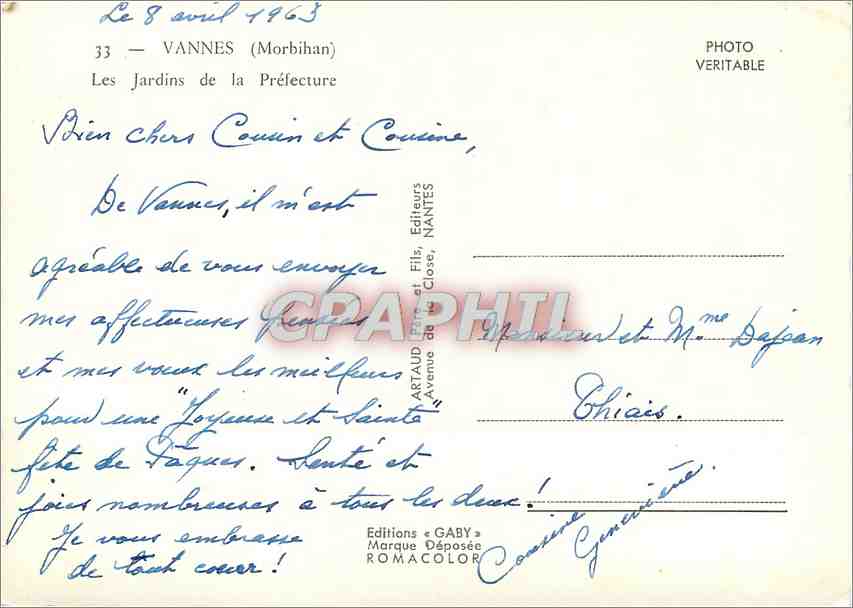 Le 8 avril 1963
33 — VANNES (Morbihan)
Les Jardins de la Préfecture
PHOTO
VERITABLE
Bien chers Cousin et Cousine,
De Vannes, il m'est
agréable de vous envoyer
mes affectueuses pensées
et mes vœux les meilleurs
pour une "Joyeuse et Sainte"
fête de Pâques. Santé et
joies nombreuses à tous les deux !
Je vous embrasse
de tout cœur !
Cousine Geneviève.
ARTAUD Père et Fils, Editeurs
Avenue de la Close, NANTES
CPAPHIL
Monsieur et Mme Dajean
Thiais.
Editions « GABY »
Marque Déposée
ROMACOLOR